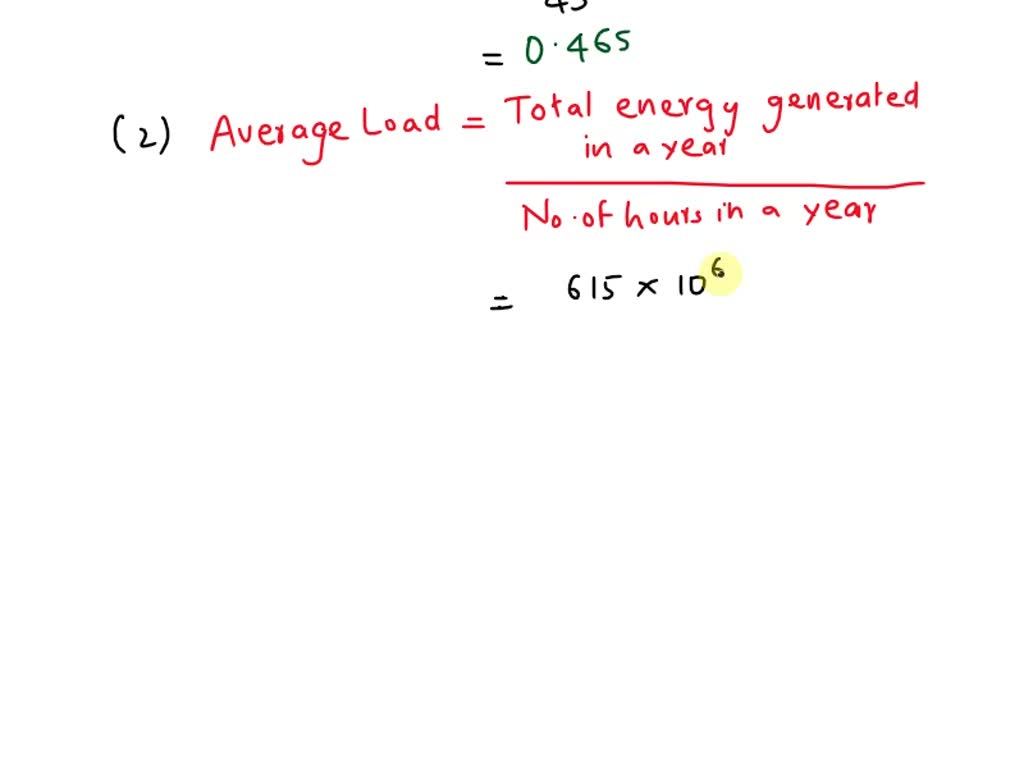 = 0.465
(2) Average Load = Total energy generated
in a year
No. of hours in a year
= 615 × 10^6